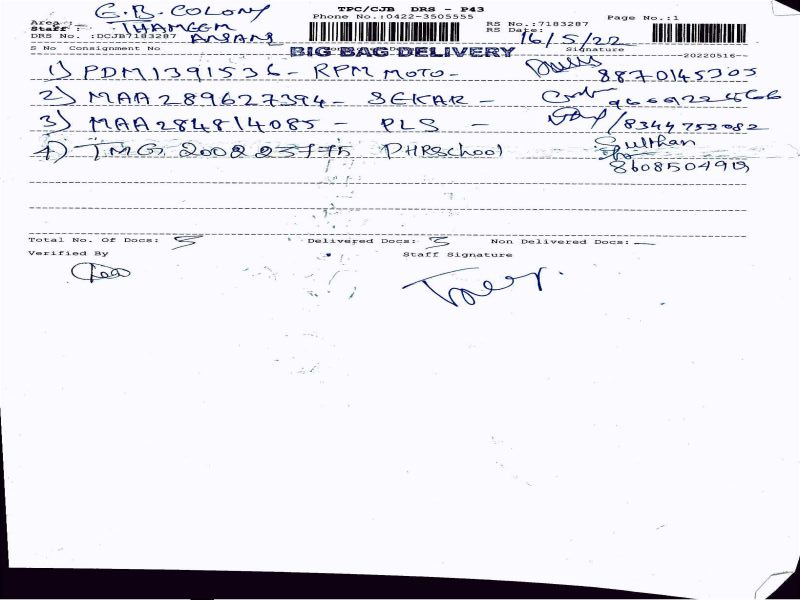 G.B. COLONY
TPC/CJB DRS - P43
Area :
Phone No.:0422-3505555
RS No.:7183287
Page No.:1
Staff : THAMEEM
DRS No. :DCJB7183287 ANSARI
RS Date: 16/5/22
S No Consignment No
BIG BAG DELIVERY
Signature
20220516
1) PDM1391536 - RPM MOTO - 8870145305
2) MAA289627394 - SEKAR -
3) MAA284814085 - PLS - /8344752082
4) TMG 200223775 PHRSchool Sulthan
8608504919
Total No. Of Docs: 3
Delivered Docs: 3
Non Delivered Docs: —
Verified By
Staff Signature